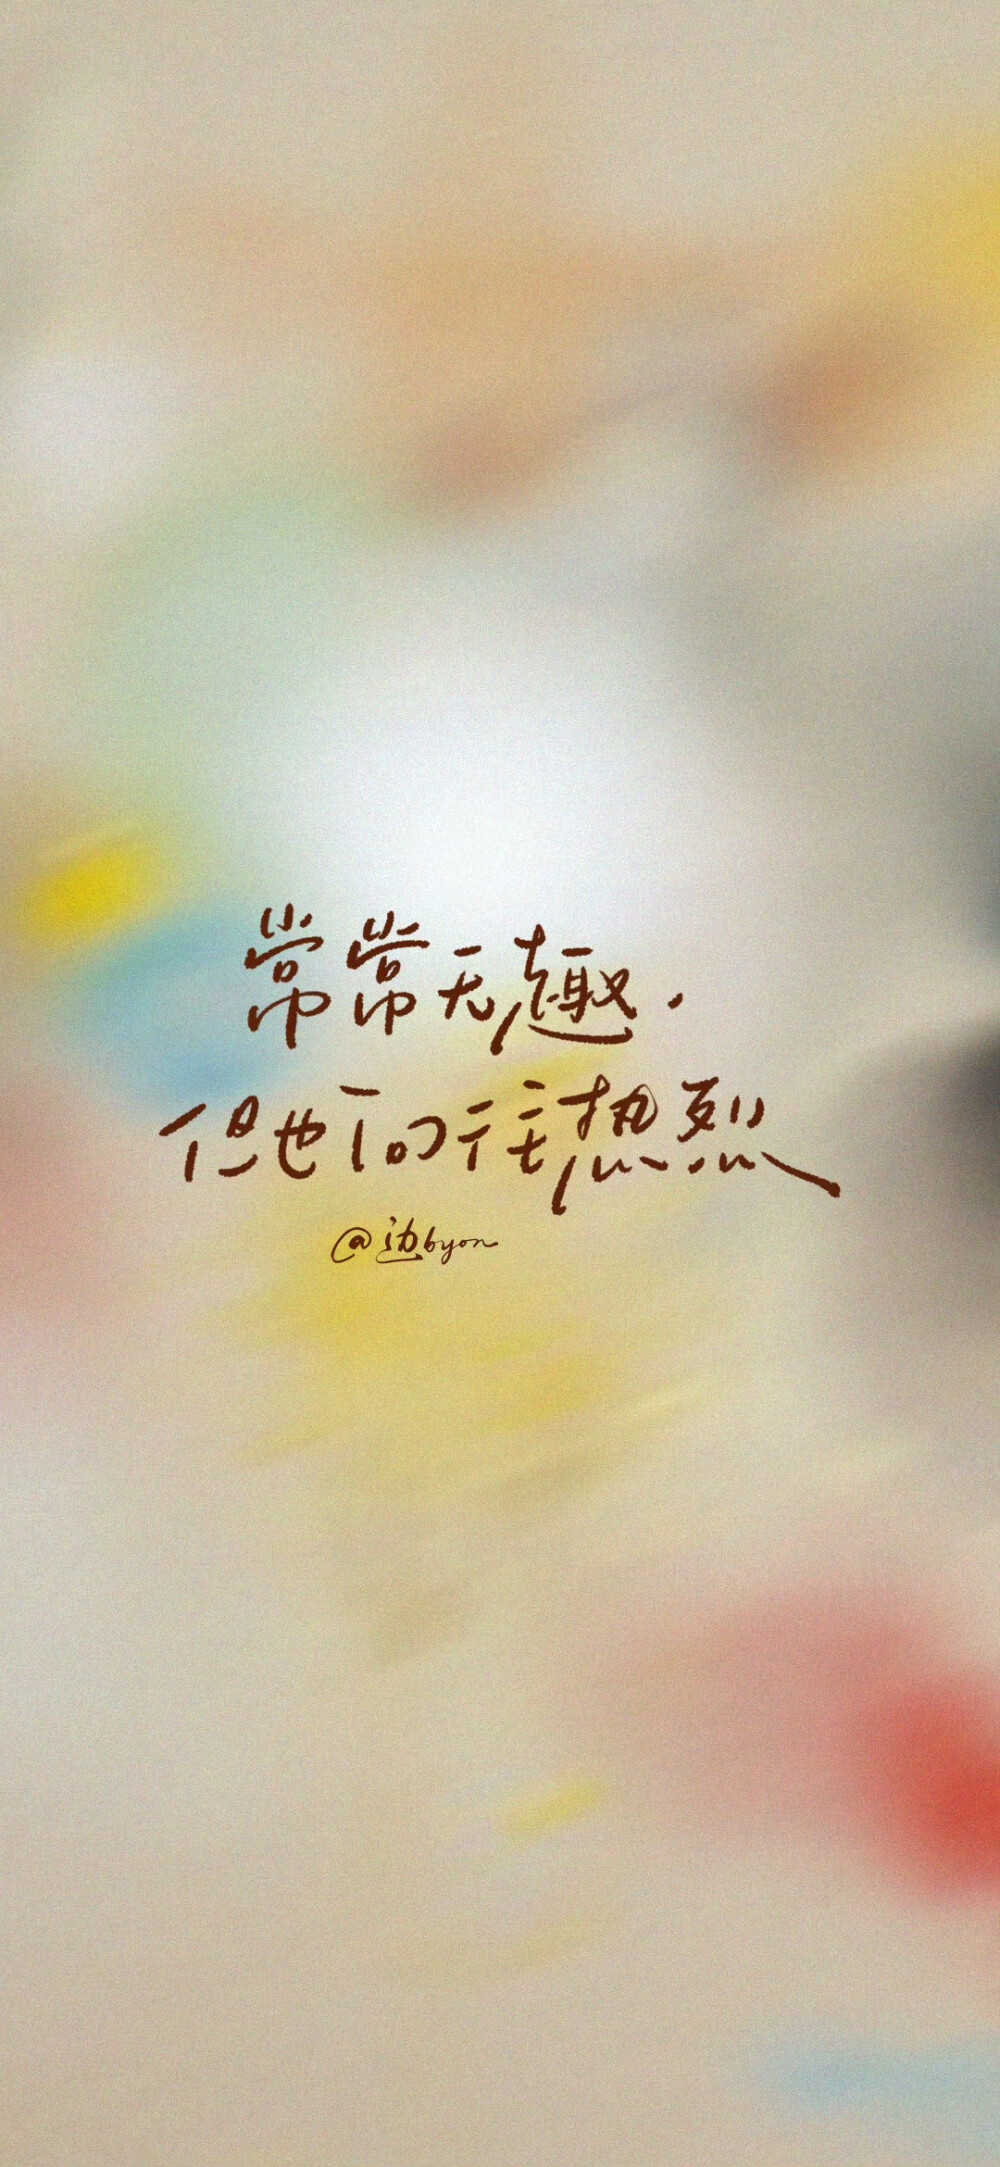 常常无趣.
但也向往热烈
@边byon